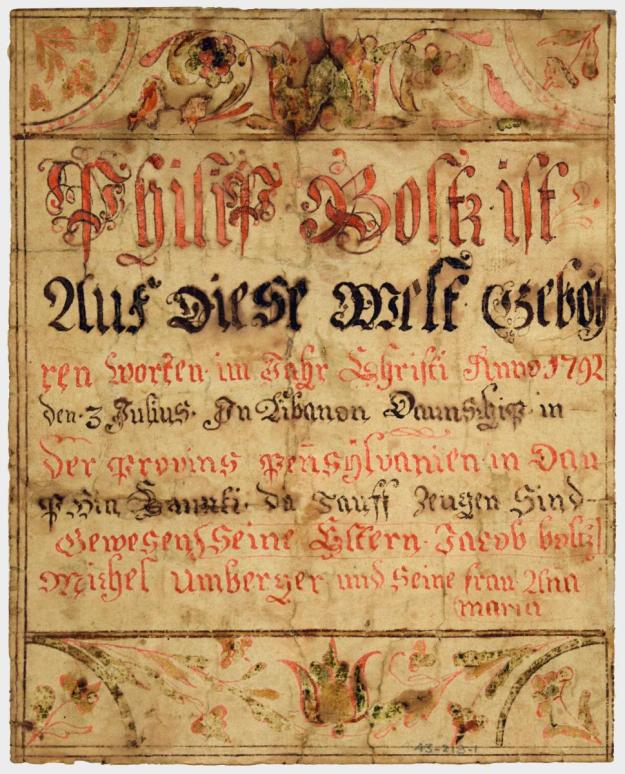 Philip Boltz ist
Auf Diese Welt Geböh
ren Worten im Jahr Christi Anno 1792
den 3 Julius. In Libanon Daunschip in
Der Provins Pensÿlvanien in Dau
da Tauff Zeugen Sind
Gewesen Seine Eltern Jacob boltz
Michel Umberger und Seine frau Ana
maria
43-213-1